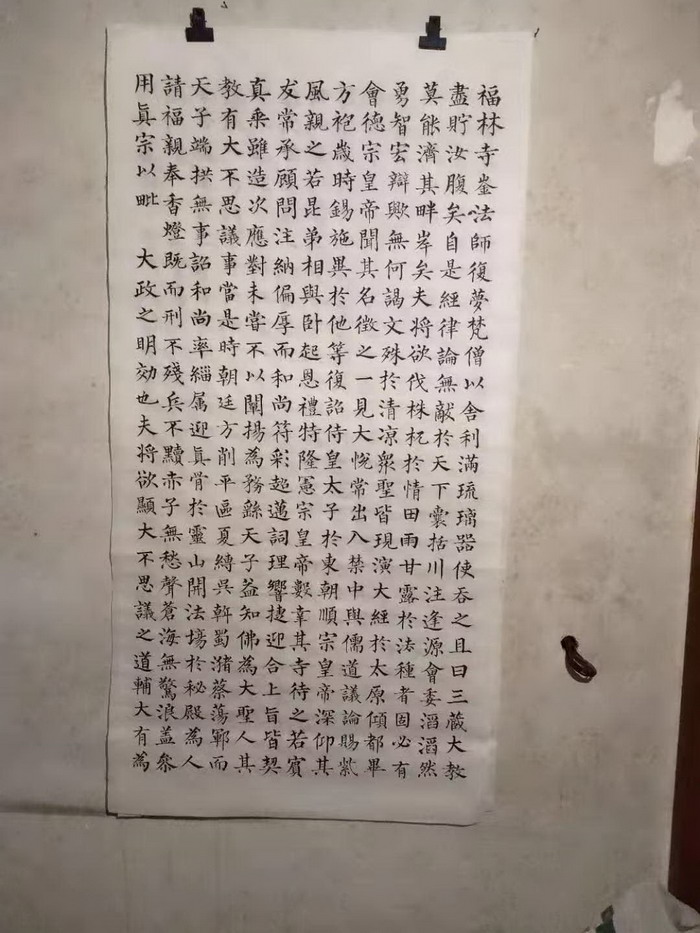 福林寺崟法師復夢梵僧以舍利滿琉璃器使吞之且曰三藏大教
盡貯汝腹矣自是經律論無献於天下囊括川注逢源會委滔滔然
莫能濟其畔岸矣夫將欲伐株杌於情田雨甘露於法種者固必有
勇智宏辯歟無何謁文殊於清凉衆聖皆現演大經於太原傾都畢
會德宗皇帝聞其名徵之一見大悅常出入禁中與儒道議論賜紫
方袍歲時錫施異於他等復詔侍皇太子於東朝順宗皇帝深仰其
風親之若昆弟相與卧起恩禮特隆憲宗皇帝數幸其寺待之若賓
友常承顧問注納偏厚而和尚符彩超邁詞理響捷迎合上旨皆契
真乘雖造次應對未嘗不以闡揚為務繇天子益知佛為大聖人其
教有大不思議事當是時朝廷方削平區夏縛吳斡蜀潴蔡蕩鄆而
天子端拱無事詔和尚率緇属迎真骨於靈山開法場於秘殿為人
請福親奉香燈既而刑不殘兵不黷赤子無愁聲蒼海無驚浪盖參
用真宗以毗 大政之明効也夫將欲顯大不思議之道輔大有為